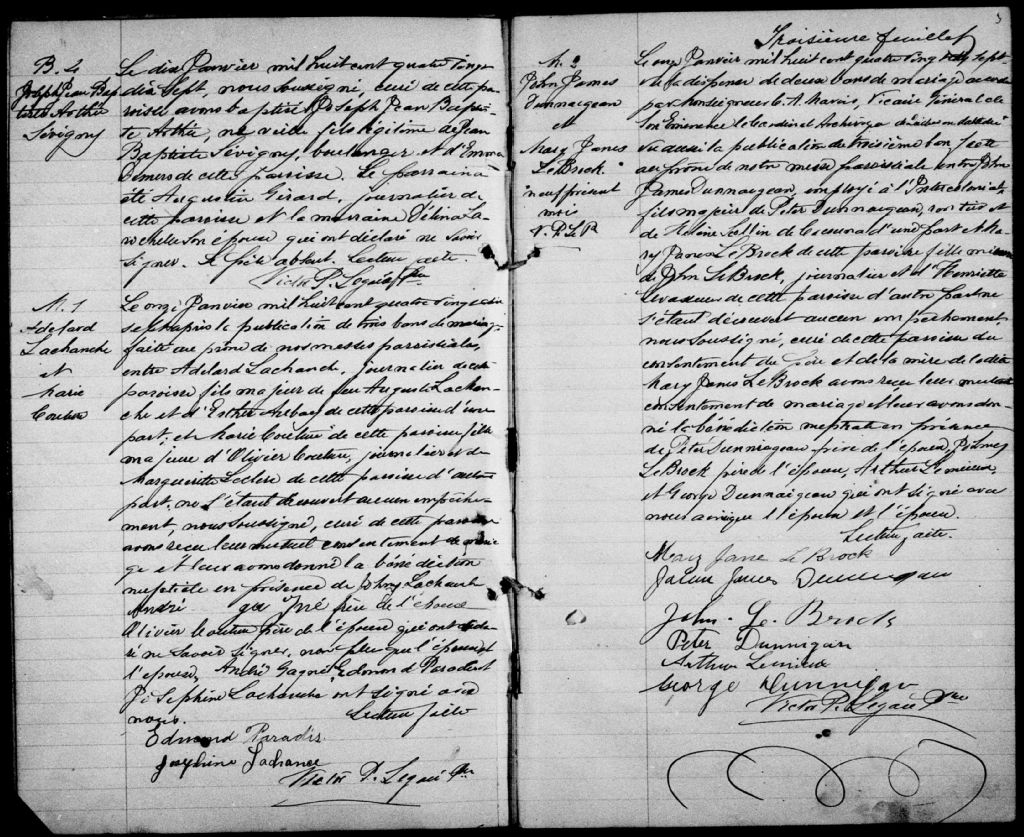 B. 4
Joseph Jean Bap
tiste Arthur
Sévigny
Le dix Janvier mil huit cent quatre vingt
dix Sept, nous soussigné, curé de cette pa
roisse avons baptisé Joseph Jean Baptis
te né la veille fils légitime de Jean
Baptiste Sévigny, boulanger et d'Emma
de cette paroisse. Le parrain a
été Augustin Girard, journalier de
cette paroisse et la marraine Délina La
son épouse qui ont déclaré ne savoir
signer. Le père absent. Lecture faite.
Victor P. Legaré Ptre
M. 1
Adelard
Lachance
et
Marie
Couture
Le onze Janvier mil huit cent quatre vingt dix
sept après la publication de trois bans de maria
faite au prône de nos messes paroissiales,
entre Adelard Lachance, journalier de cette
paroisse fils majeur de feu Auguste Lachan
che et d'Esther de cette paroisse d'une
part, et Marie Couture de cette paroisse fille
majeure d'Olivier Couture, journalier et de
Marguerite Leclerc de cette paroisse d'autre
part, ne s'étant découvert aucun empêche
ment, nous soussigné, curé de cette paroisse
avons reçu leur mutuel consentement de maria
ge et leur avons donné la bénédiction
nuptiale en présence de Johny Lachance
André frère de l'époux
Olivier Couture père de l'épouse qui ont décla
ré ne savoir signer, non plus que l'époux et
l'épouse, André Gagné, Edmond Paradis et
Joséphine Lachance ont signé avec
nous. Lecture faite
Edmond Paradis
Josephine Lachance
Victor P. Legaré Ptre
Troisième feuillet
3
M. 2
John James
Dunnaigean
et
Mary James
LeBrock
neuf présent
mois
V. P. L. P
Le onze Janvier mil huit cent quatre vingt dix sept
vu la dispense de deux bans de mariage accordée
par Monseigneur C. A. Marois, Vicaire Général de
Son Eminence le Cardinal Archevêque
vu aussi la publication du troisième ban faite
au prône de notre messe paroissiale entre John
James Dunnaigean, employé à l'Intercolonial
fils majeur de Peter Dunnaigean, et
de d'une part et Ma
ry James LeBrock de cette paroisse fille mineure
de John LeBrock, journalier et d'Henriette
Levasseur de cette paroisse d'autre part ne
s'étant découvert aucun empêchement,
nous soussigné, curé de cette paroisse du
consentement du père et de la mère de la dite
Mary James LeBrock avons reçu leur mutuel
consentement de mariage et leur avons don
né la bénédiction nuptiale en présence
de Peter Dunnaigeau frère de l'époux, John
LeBrock père de l'épouse, Arthur Lemieux,
et George Dunnaigeau qui ont signé avec
nous ainsi que l'époux et l'épouse.
Lecture faite.
Mary Jane LeBrock
James Dunnigan
John. Le. Brock
Peter Dunnigan
Arthur Lemieux
George Dunnigan
Victor P. Legaré Ptre